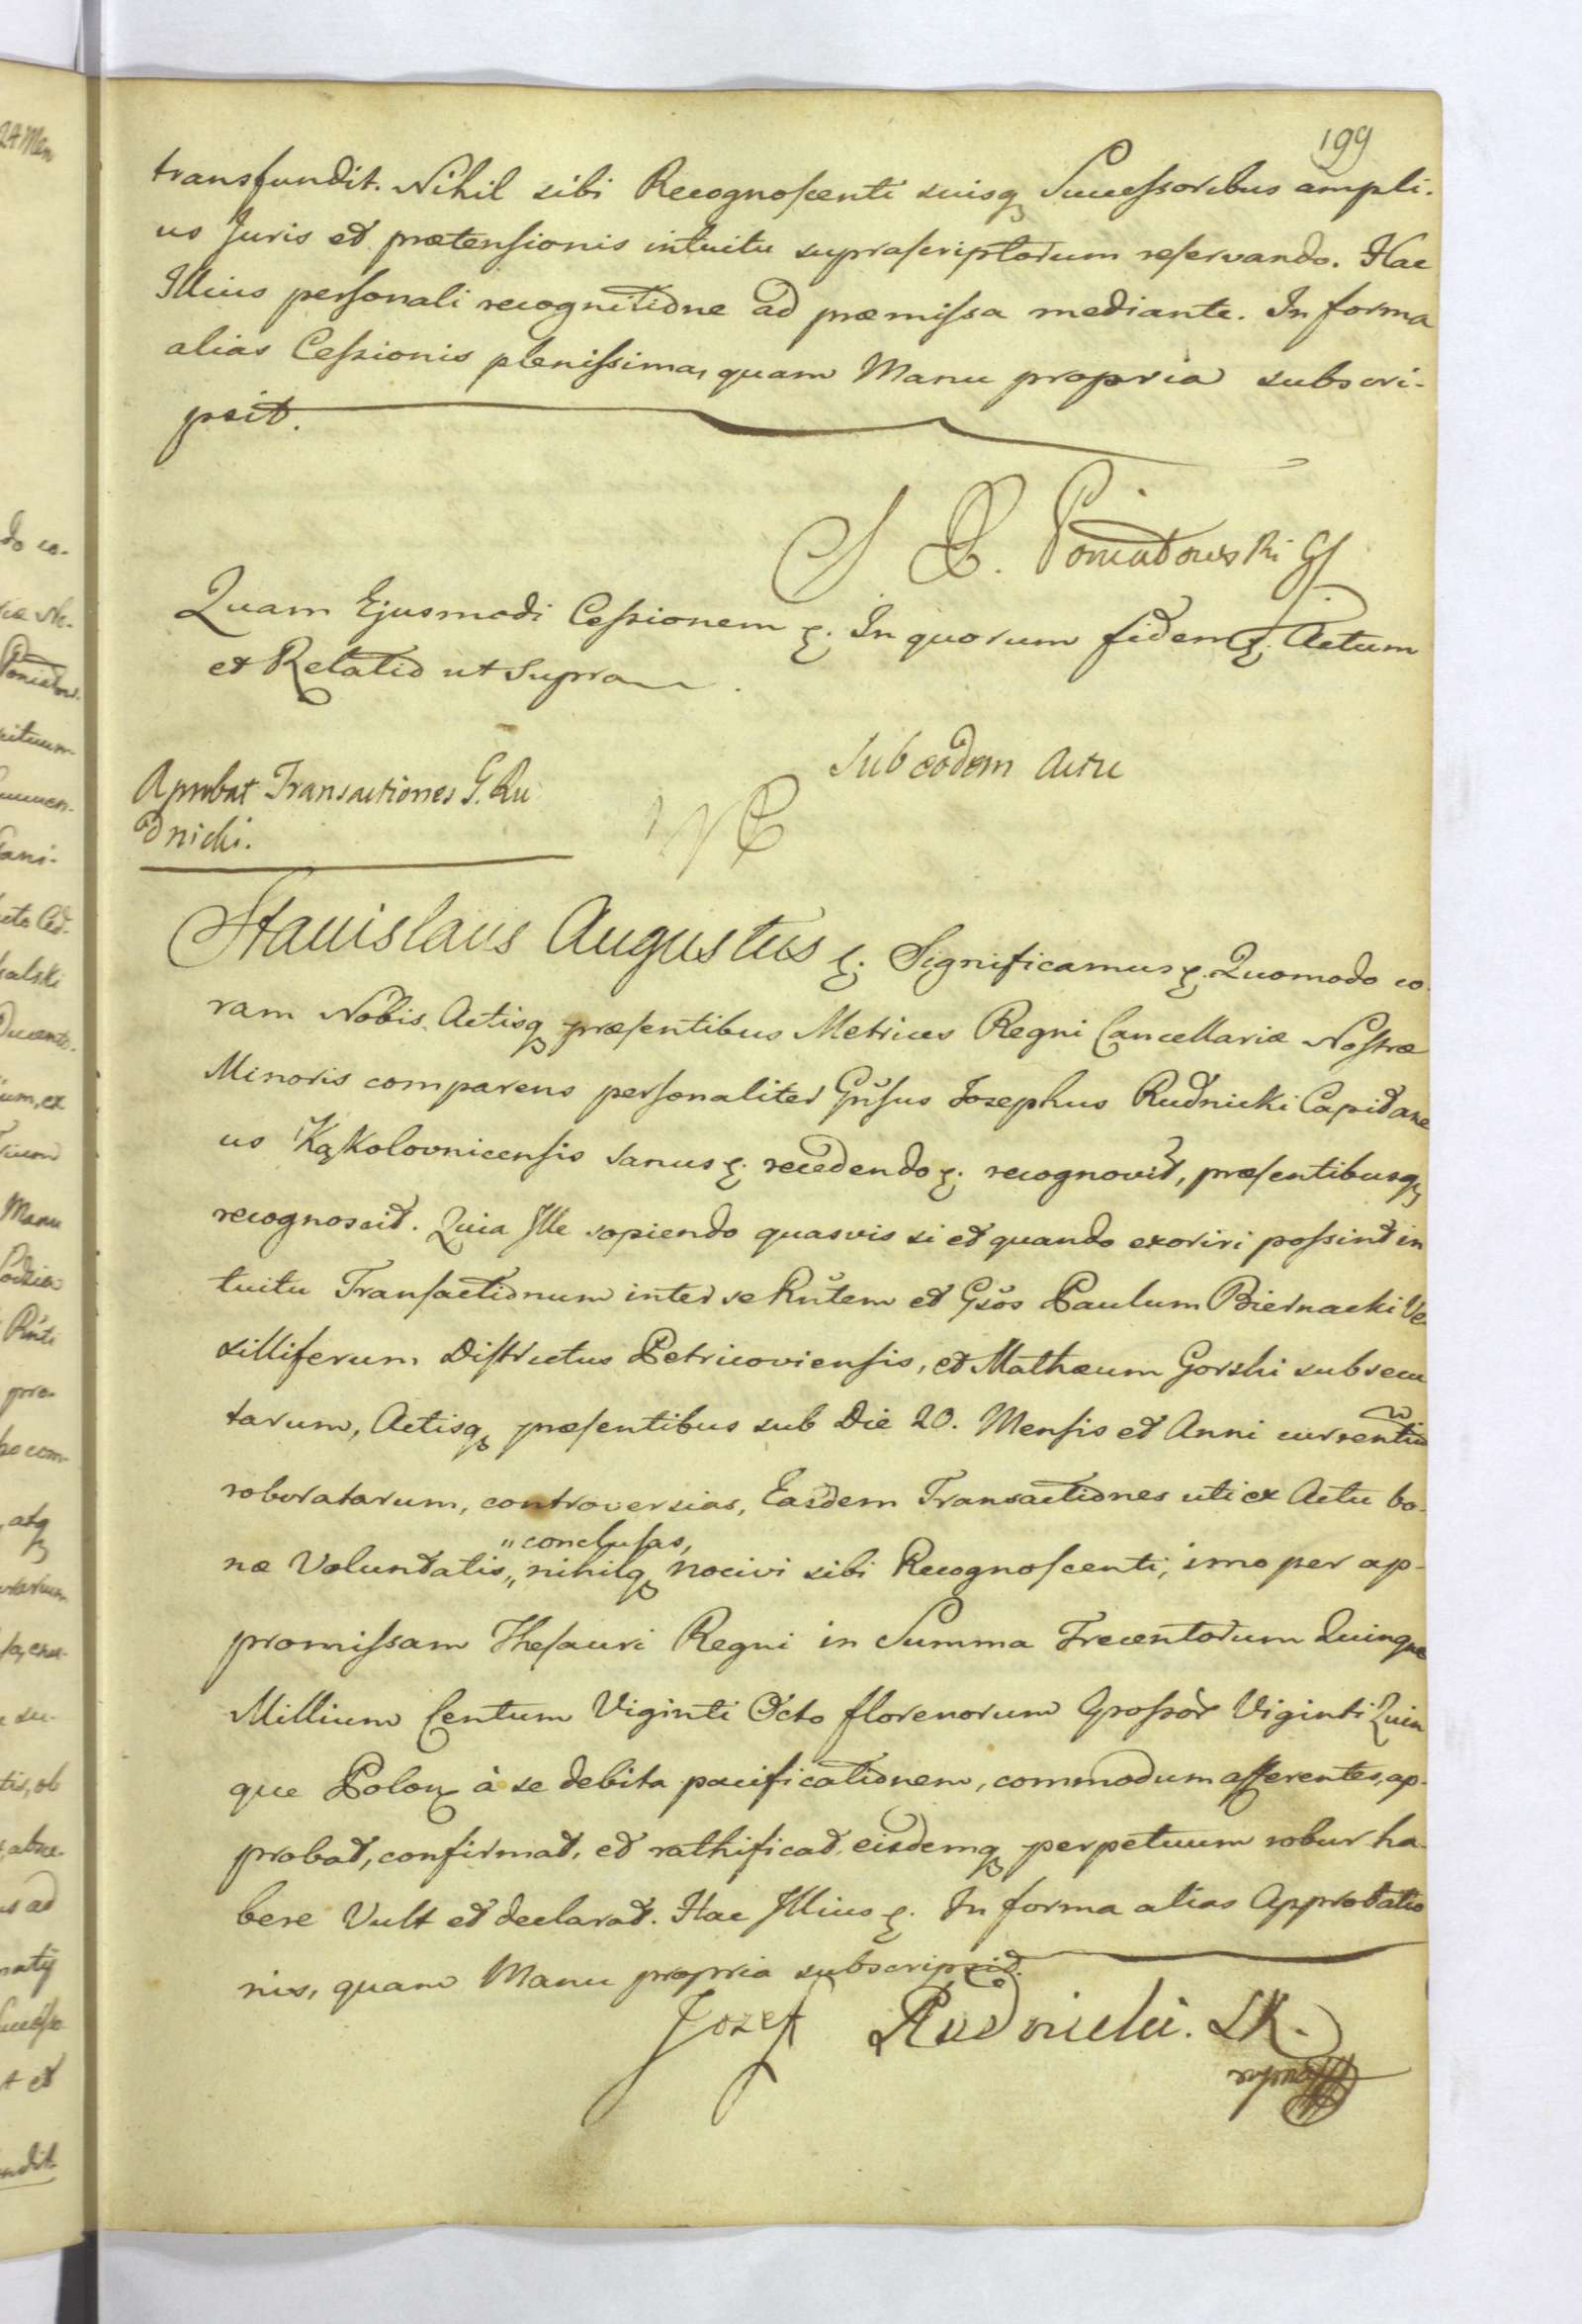 199
transfundit. Nihil sibi Recognoscenti suisq Successoribus ampli-
us Juris et prætensionis intuitu suprascriptorum reservando. Hac
Illius personali recognitione ad præmissa mediante. In forma
alias Cessionis plenissima, quam Manu propria subscri-
psit.
Poniatowski
Quam Ejusmodi Cessionem &. In quorum fidem &. Actum
et Relatio ut Supra
Sub eodem Actu
Aprobat Transactiones G. Ru
dnicki.
Stanislaus Augustus &. Significamus &. Quomodo co-
ram Nobis Actisq præsentibus Metrices Regni Cancellariæ Nostræ
Minoris comparens personaliter Gnsus Josephus Rudnicki Capitane
us Kąkolovnicensis sanus &. recedendo &. recognovit, præsentibusq
recognoscit. Quia Ille sopiendo quasvis si et quando exoriri possint in
tuitu Transactionum inter se Rntem et Gsos Paulum Biernacki Ve
xilliferum Districtus Petricoviensis, et Mathæum Gorski subsecu
tarum, Actisq præsentibus sub Die 20. Mensis et Anni currentiu
roboratarum, controversias, Easdem Transactiones uti ex Actu bo-
"conclusas,
næ Voluntatis,, nihilq nocivi sibi Recognoscenti, imo per ap-
promissam Thesauri Regni in Summa Trecentorum Quinque
Millium Centum Viginti Octo florenorum Grossor Viginti Quin
que Polon à se debita pacificationem, commodum afferentes, ap-
probat, confirmat, et rathificat eisdemq perpetuum robur ha-
bere Vult et declarat. Hac Illius &. In forma alias Approbatio
nis, quam Manu propria subscripsit.
Jozef Rudnicki. SK.